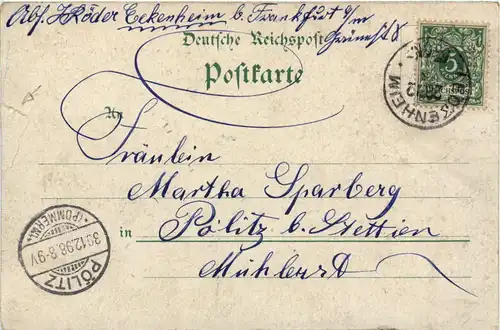 Abs. J Röder Eckenheim b. Frankfurt a/m
Deutsche Reichspost
Postkarte
An
Fräulein
Martha Sparberg
in Pölitz b. Stettien
Mühlerst
5
ECKENHEIM
PÖLITZ
(POMMERN)
30.12.98.8-9V